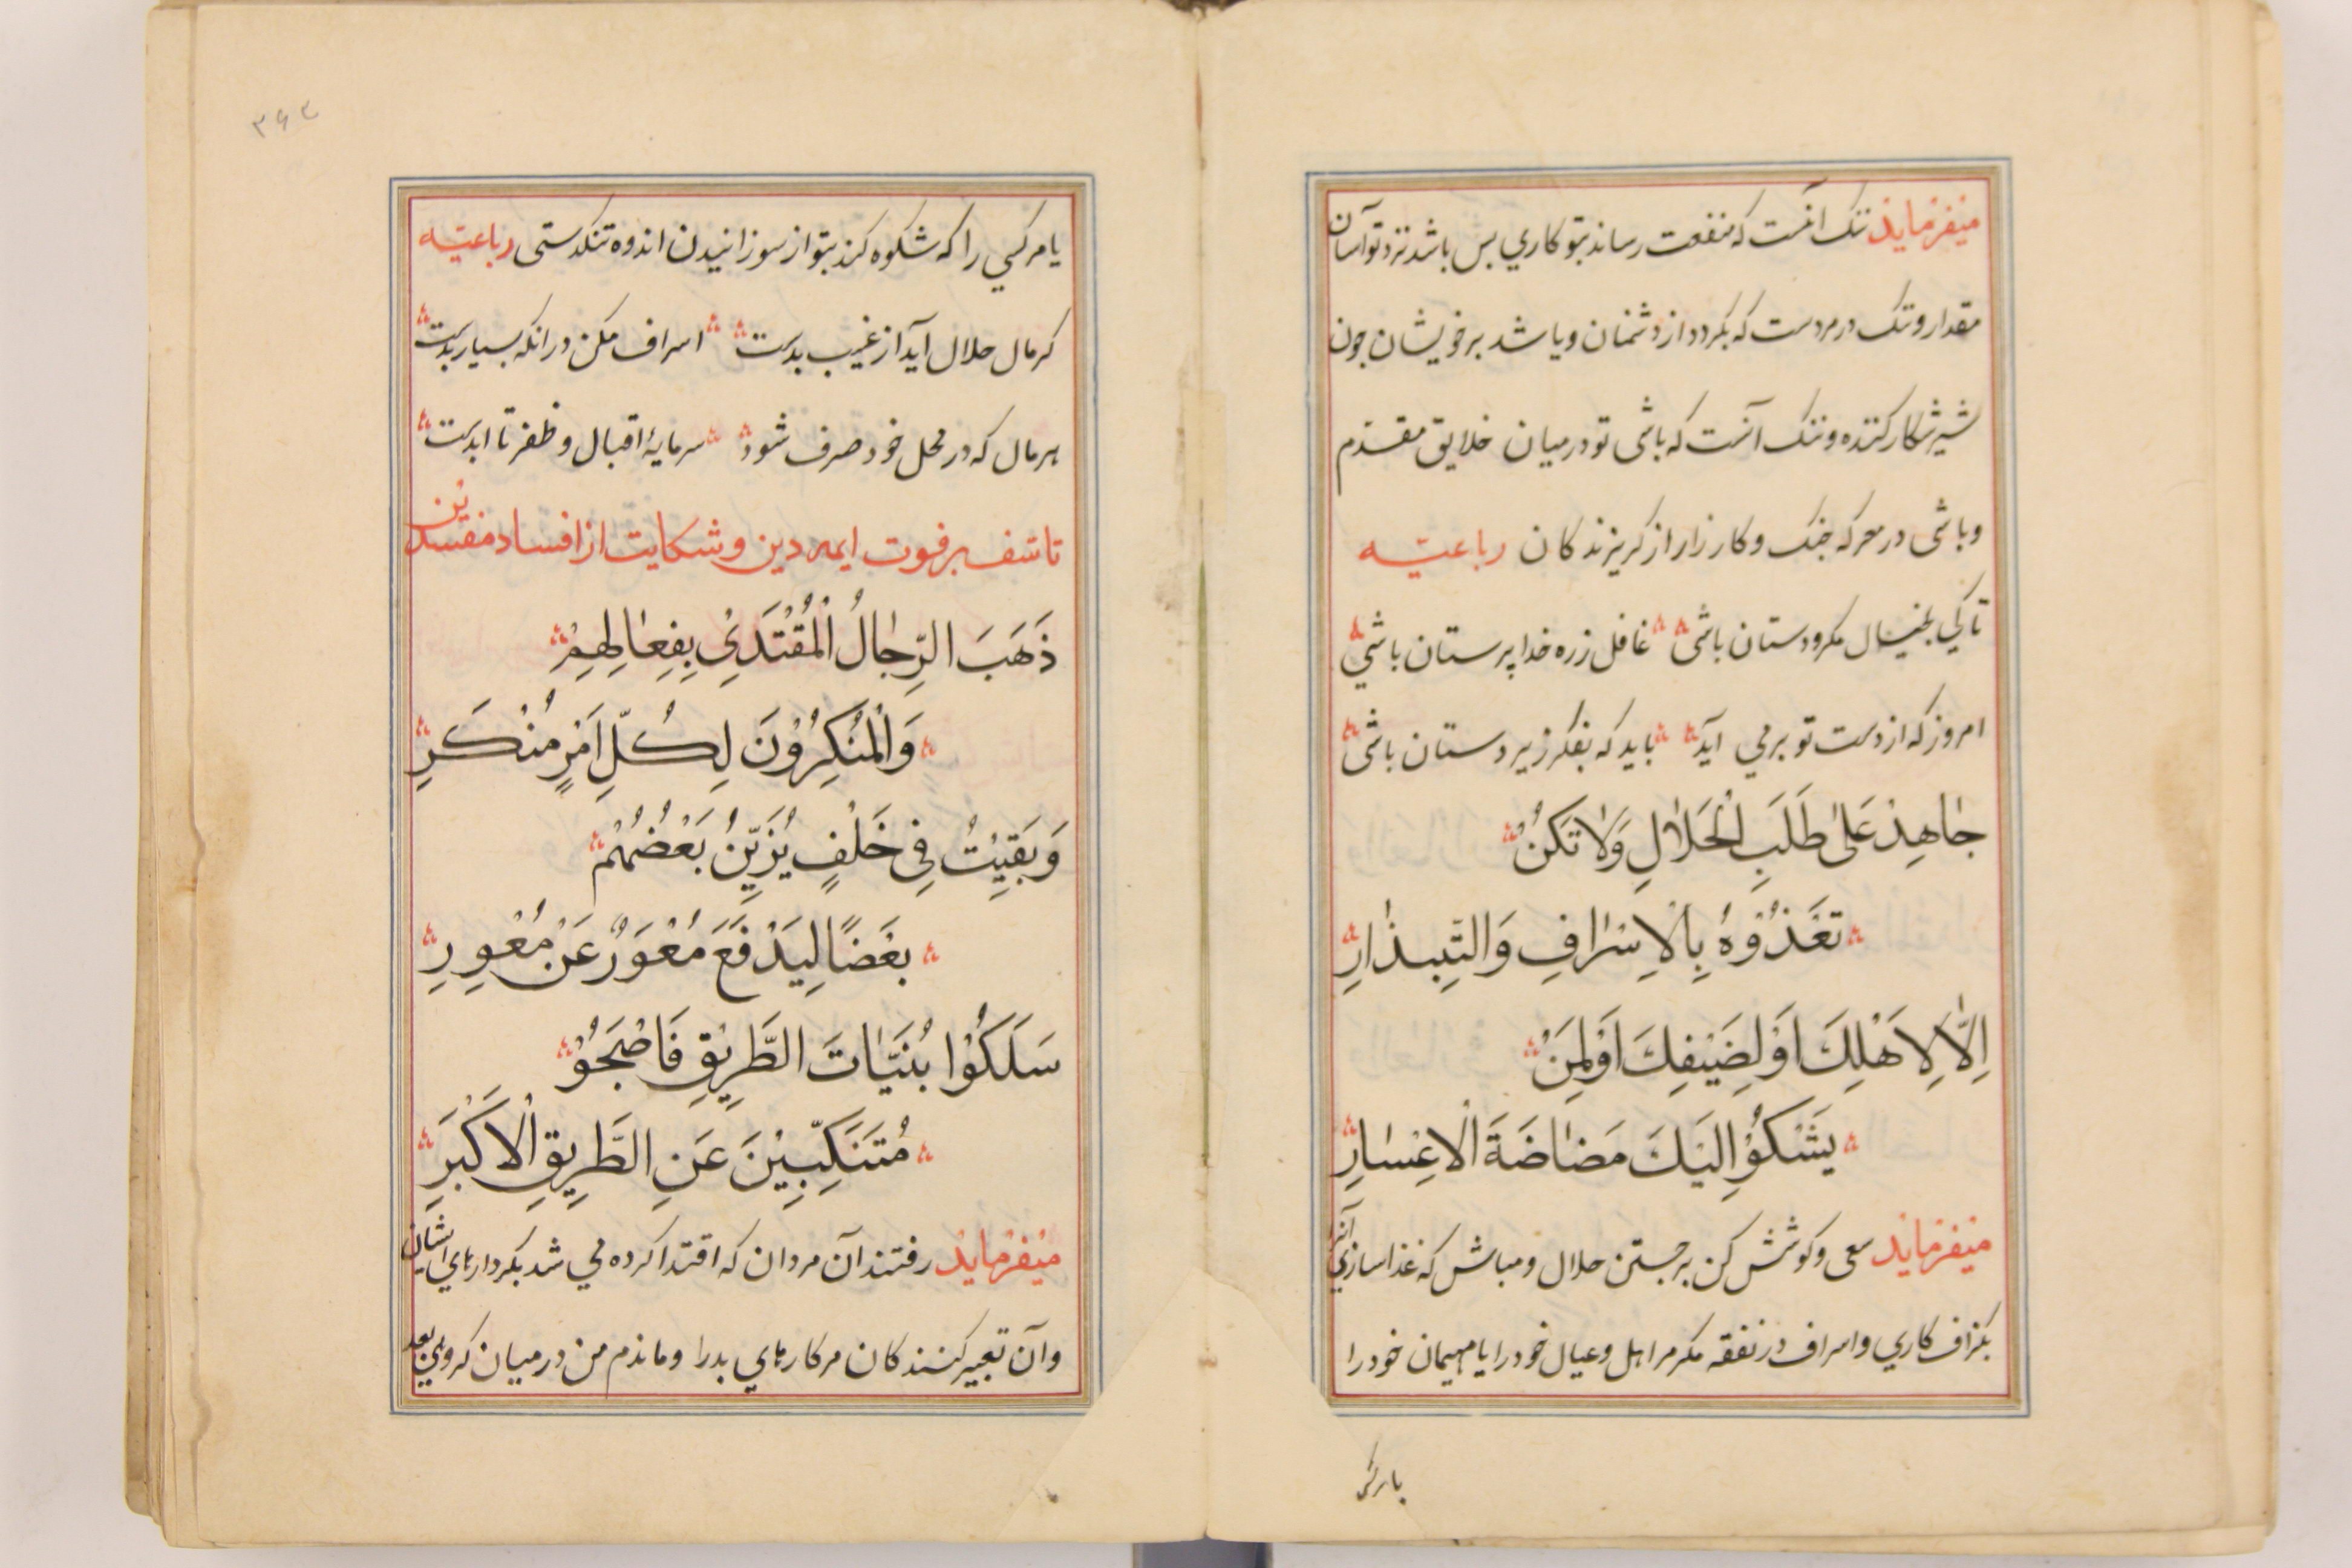 میفرماید ننگ آنست که منفعت رساند بتو کاري بس باشد نزد تو آسان
مقدار و ننگ در مردست که بگردد از دشمنان و باشد بر خویشان چون
شیر شکار کننده و ننگ آنست که باشی تو در میان خلایق مقدّم
و باشی در معرکه جنک و کارزار از کریزندکان رباعیّه
تا کي بخیال مکر و دستان باشی غافل ز ره خدا پرستان باشي
امروز که از دست تو بر مي آید باید که بفکر زیر دستان باشی
جٰاهِدْ عَلىٰ طَلَبِ الْحَلاٰلِ وَلاٰ تَكُنْ
تَغْذُوْهُ بِالْاِسْرٰافِ وَالتَّبْذٰارِ
اِلّاٰ لِاَهْلِكَ اَوْ لِضَيْفِكَ اَوْ لِمَنْ
يَشْكُوْ اِلَيْكَ مَضٰاضَةَ الْاِعْسٰارِ
میفرماید سعی و کوشش کن بر جستن حلال و مباش که غذا سازي آنرا
بکزاف کاري و اسراف در نفقه مکر مر اهل و عیال خود را یا مهمان خود را
یا مرکسي
۳۶۳
یا مر کسي را که شکوه کند بتو از سوزانیدن اندوه تنکدستی رباعیّه
کر مال حلال آید از غیب بدست اسراف مکن در انکه بسیار بدست
هر مال که در محل خود صرف شود سرمایهٔ اقبال و ظفر تا ابدست
تاسّف بر فوت ایمه دین و شکایت از افساد مفسدین
ذَهَبَ الرِّجٰالُ الْمُقْتَدَىْ بِفِعٰالِهِمْ
وَالْمُنْكِرُوْنَ لِكُلِّ اَمْرٍ مُنْكَرِ
وَ بَقِيْتُ فِي خَلْفٍ يُزَيِّنُ بَعْضُهُمْ
بَعْضًا لِيَدْفَعَ مُعْوَرٌ عَنْ مُعْوِرِ
سَلَكُوْا بُنَيّٰاتَ الطَّرِيْقِ فَاَصْبَحُوْا
مُتَنَكِّبِيْنَ عَنِ الطَّرِيْقِ الْاَكْبَرِ
میفرماید رفتند آن مردان که اقتدا کرده مي شد بکردارهاي ایشان
و آن تغییر کنندکان مر کارهاي بد را و ماندم من در میان کروهي بعد